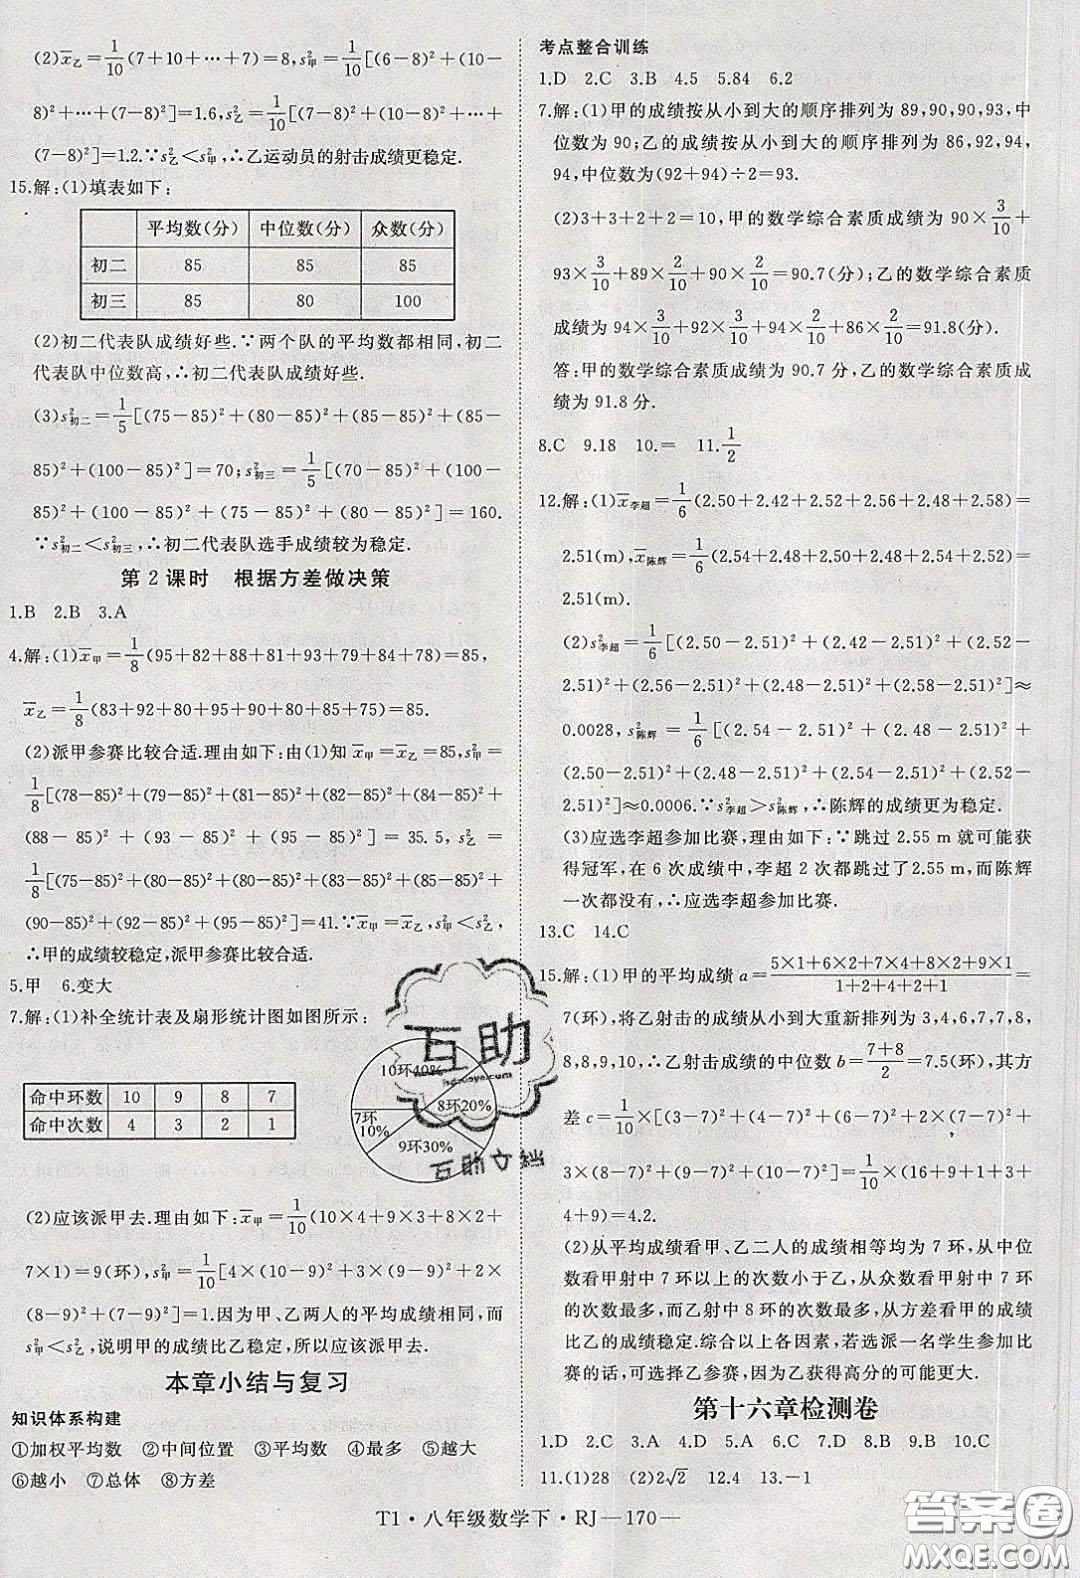 (2)x̄乙=1/10(7+10+…+7)=8,s²甲=1/10[(6-8)²+(10-
8)²+…+(7-8)²]=1.6,s²乙=1/10[(7-8)²+(10-8)²+…+
(7-8)²]=1.2.∵s²乙<s²甲,∴乙运动员的射击成绩更稳定.
15.解:(1)填表如下:
平均数(分) 中位数(分) 众数(分)
初二 85 85 85
初三 85 80 100
(2)初二代表队成绩好些.∵两个队的平均数都相同,初二
代表队中位数高,∴初二代表队成绩好些.
(3)s²初二=1/5[(75-85)²+(80-85)²+(85-85)²+(85-
85)²+(100-85)²]=70;s²初三=1/5[(70-85)²+(100-
85)²+(100-85)²+(75-85)²+(80-85)²]=160.
∵s²初二<s²初三,∴初二代表队选手成绩较为稳定.
第2课时 根据方差做决策
1.B 2.B 3.A
4.解:(1)x̄甲=1/8(95+82+88+81+93+79+84+78)=85,
x̄乙=1/8(83+92+80+95+90+80+85+75)=85.
(2)派甲参赛比较合适.理由如下:由(1)知x̄甲=x̄乙=85,s²甲=
1/8[(78-85)²+(79-85)²+(81-85)²+(82-85)²+(84-85)²+
(88-85)²+(93-85)²+(95-85)²]=35.5,s²乙=
1/8[(75-85)²+(80-85)²+(80-85)²+(83-85)²+(85-85)²+
(90-85)²+(92-85)²+(95-85)²]=41.∵x̄甲=x̄乙,s²甲<s²乙,
∴甲的成绩较稳定,派甲参赛比较合适.
5.甲 6.变大
7.解:(1)补全统计表及扇形统计图如图所示:
命中环数 10 9 8 7
命中次数 4 3 2 1
10环40%
8环20%
7环
10%
9环30%
(2)应该派甲去.理由如下:x̄甲=1/10(10×4+9×3+8×2+
7×1)=9(环),s²甲=1/10[4×(10-9)²+3×(9-9)²+2×
(8-9)²+(7-9)²]=1.因为甲、乙两人的平均成绩相同,而
s²甲<s²乙,说明甲的成绩比乙稳定,所以应该派甲去.
本章小结与复习
知识体系构建
①加权平均数 ②中间位置 ③平均数 ④最多 ⑤越大
⑥越小 ⑦总体 ⑧方差
考点整合训练
1.D 2.C 3.B 4.5 5.84 6.2
7.解:(1)甲的成绩按从小到大的顺序排列为89,90,90,93,中
位数为90;乙的成绩按从小到大的顺序排列为86,92,94,
94,中位数为(92+94)÷2=93.
(2)3+3+2+2=10,甲的数学综合素质成绩为90×3/10+
93×3/10+89×2/10+90×2/10=90.7(分);乙的数学综合素质
成绩为94×3/10+92×3/10+94×2/10+86×2/10=91.8(分).
答:甲的数学综合素质成绩为90.7分,乙的数学综合素质成
绩为91.8分.
8.C 9.18 10.= 11.1/2
12.解:(1)x̄李超=1/6(2.50+2.42+2.52+2.56+2.48+2.58)=
2.51(m),x̄陈辉=1/6(2.54+2.48+2.50+2.48+2.54+2.52)=
2.51(m).
(2)s²李超=1/6[(2.50-2.51)²+(2.42-2.51)²+(2.52-
2.51)²+(2.56-2.51)²+(2.48-2.51)²+(2.58-2.51)²]≈
0.0028,s²陈辉=1/6[(2.54-2.51)²+(2.48-2.51)²+
(2.50-2.51)²+(2.48-2.51)²+(2.54-2.51)²+(2.52-
2.51)²]≈0.0006.∵s²李超>s²陈辉,∴陈辉的成绩更为稳定.
(3)应选李超参加比赛,理由如下:∵跳过2.55 m就可能获
得冠军,在6次成绩中,李超2次都跳过了2.55 m,而陈辉
一次都没有,∴应选李超参加比赛.
13.C 14.C
15.解:(1)甲的平均成绩a=(5×1+6×2+7×4+8×2+9×1)/(1+2+4+2+1)=
7(环),将乙射击的成绩从小到大重新排列为3,4,6,7,7,8,
8,8,9,10,∴乙射击成绩的中位数b=(7+8)/2=7.5(环),其方
差c=1/10×[(3-7)²+(4-7)²+(6-7)²+2×(7-7)²+
3×(8-7)²+(9-7)²+(10-7)²]=1/10×(16+9+1+3+
4+9)=4.2.
(2)从平均成绩看甲、乙二人的成绩相等均为7环,从中位
数看甲射中7环以上的次数小于乙,从众数看甲射中7环
的次数最多,而乙射中8环的次数最多,从方差看甲的成绩
比乙的成绩稳定.综合以上各因素,若选派一名学生参加比
赛的话,可选择乙参赛,因为乙获得高分的可能更大.
第十六章检测卷
1.D 2.C 3.A 4.D 5.A 6.C 7.D 8.B 9.B 10.C
11.(1)28 (2)2√2 12.4 13.-1
T1·八年级数学下·RJ—170—
互助
互助文档
答案圈
MXQE.COM